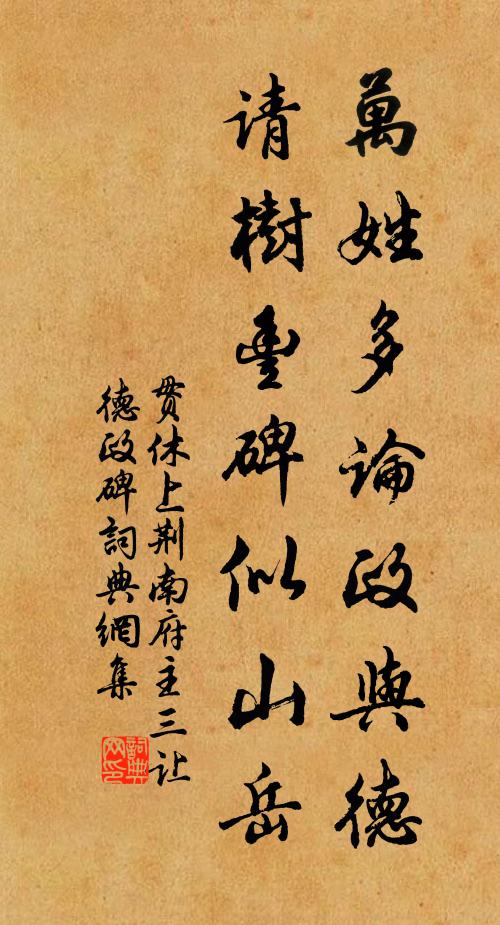 萬姓多論政與德
请樹豊碑似山岳
贯休上荆南府主三让
德政碑詞典網集
詞典网印